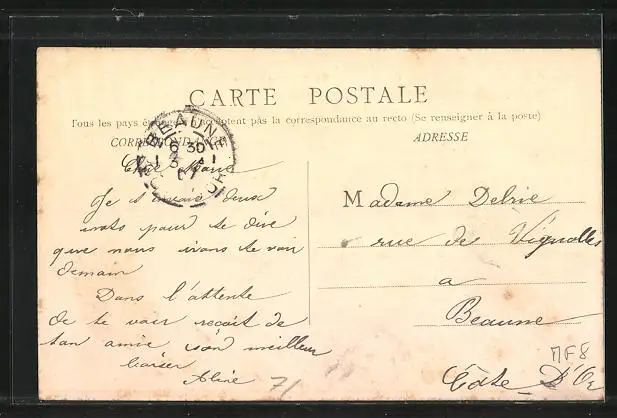 CARTE POSTALE
Tous les pays étrangers n'acceptent pas la correspondance au recto (Se renseigner à la poste)
CORRESPONDANCE
ADRESSE
BEAUNE
6 30
Chère Marie
Je t'envais deux
mots pour te dire
que nous irons te voir
demain
Dans l'attente
de te voir reçoit de
ton amie son meilleur
baiser
Aline
Madame Delrie
rue de Vignolles
a
Beaune
Côte D'Or
MF8